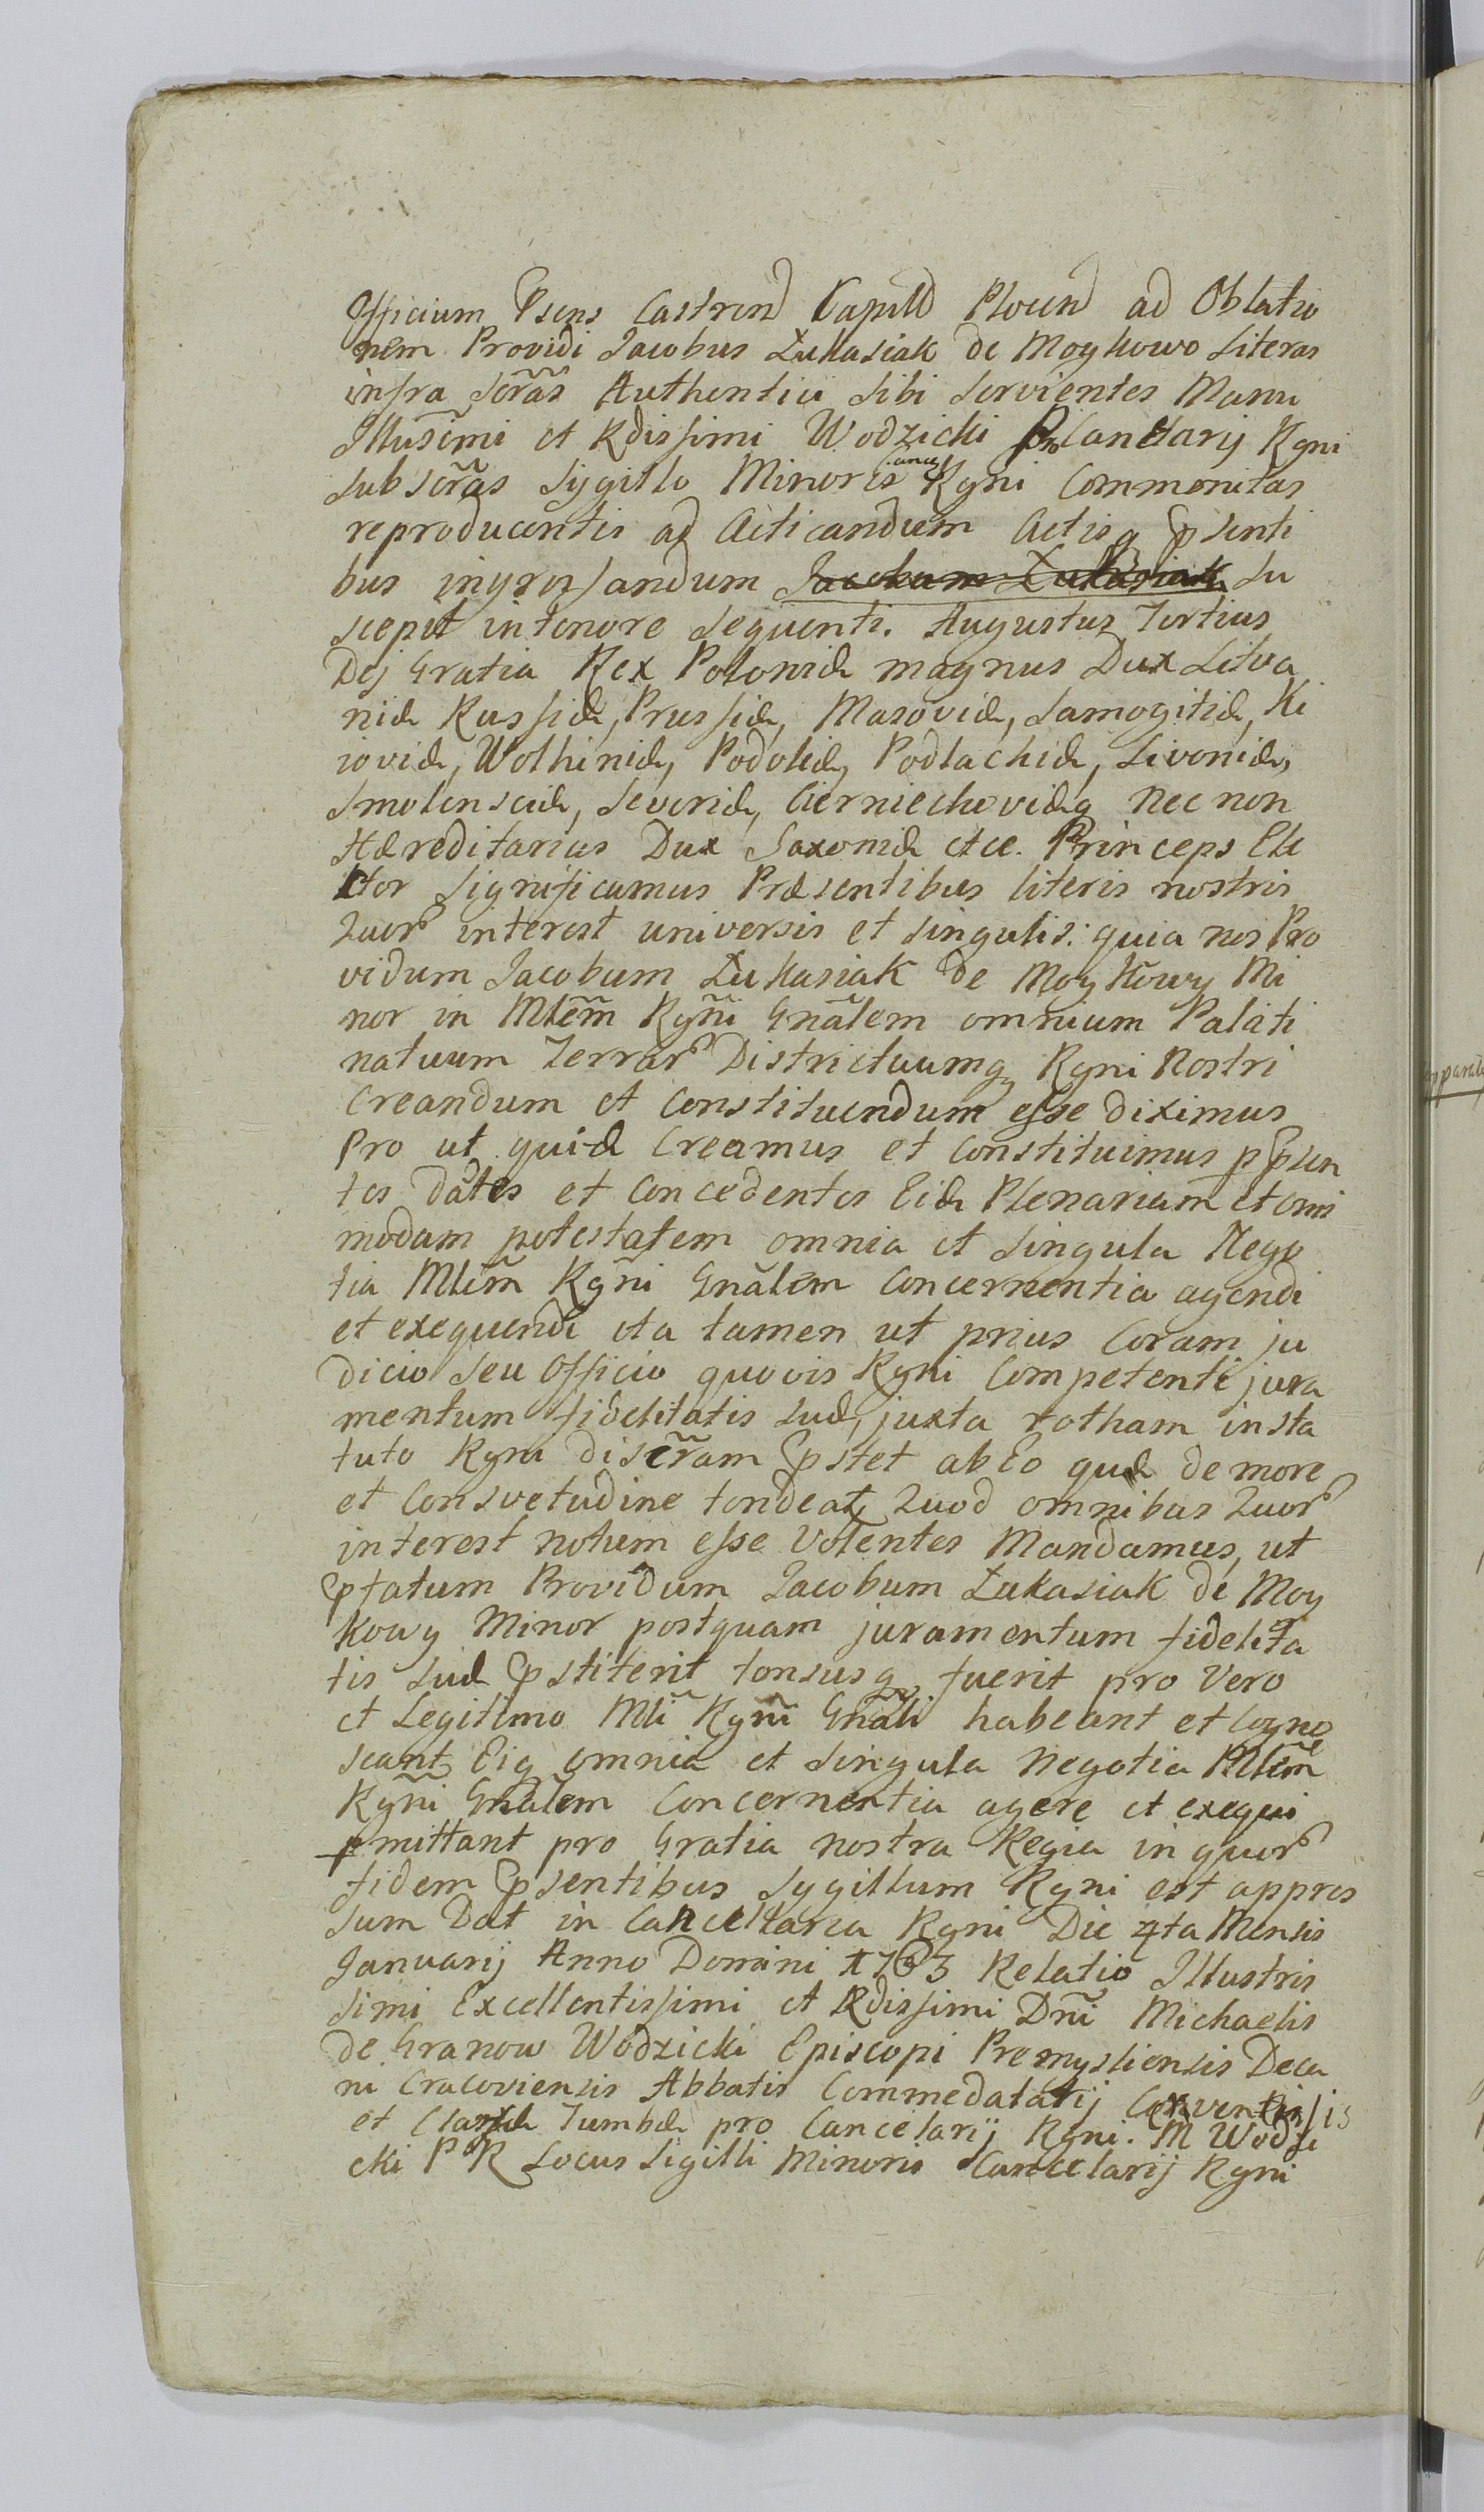 Officium Psens Castren Capitl Plocen ad Oblatio
nem Providi Jacobus Łukasiak de Moykowo Literas
infra scras Authentici sibi servientes Manu
Illussimi et Rdissimi Wodzicki Pro Canclarij Rgni
subscras Sygillo Minoris Canc Rgni Commonitas
reproducentis ad Acticandum Actisq psenti
bus ingrossandum Jacobum Łukasiak su
scepit in tenore sequenti. Augustus Tertius
Dej Gratia Rex Poloniæ magnus Dux Litva
niæ Russiæ, Prussiæ, Masoviæ, Samogitiæ, Ki
ioviæ, Wolhiniæ, Podoliæ, Podlachiæ, Livoniæ,
Smolensciæ, Severiæ, Cierniechoviæq nec non
Hæreditarius Dux Saxoniæ etce. Princeps Ele
ctor Significamus Præsentibus literis nostris
Quor interest universis et singulis: quia nos Pro
vidum Jacobum Łukasiak de Moykowy Mi
nor in Mlem Rgni Gnalem omnium Palati
natuum Terrar Districtuumq Rgni Nostri
Creandum et Constituendum esse diximus
Pro ut quidæ Creamus et Constituimus p psen
tes Dates et Concedentes Eidæ Plenariam et omi
modam potestatem omnia et singula Nego
tia Mlem Rgni Gnalem Concernentia agendi
et exequendi ita tamen ut prius Coram ju
dicio seu Officio quovis Rgni Competenti jura
mentum fidelitatis suæ, juxta rotham insta
tuto Rgni discram pstet ab Eo quæ de more
et Consvetudine tondeat, Quod omnibus Quor
interest notum esse Volentes Mandamus, ut
ptatum Providum Jacobum Łukasiak de Moy
kowy Minor postquam juramentum fidelita
tis suæ pstiterit tonsusq fuerit pro Vero
et Legitimo Mli Rgni Gnali habeant et Cogno
scant, Eiq omnia et singula Negotia Mlem
Rgni Gnalem Concernentia agere et exequi
pmittant pro Gratia nostra Regia in quor
fidem psentibus Sygillum Rgni est appres
sum Dat in Cancellaria Rgni Die 4ta Mensis
Januarij Anno Domini 1763 Relatio Illustris
simi Excellentissimi et Rdissimi Dni Michaelis
de Granow Wodzicki Episcopi Premysliensis Deca
ni Cracoviensis Abbatis Commedatatij
et Claræ Tumbæ pro Cancelarij Rgni. M Wodzi
cki P R Locus Sigilli Minoris Cancelarij Rgni